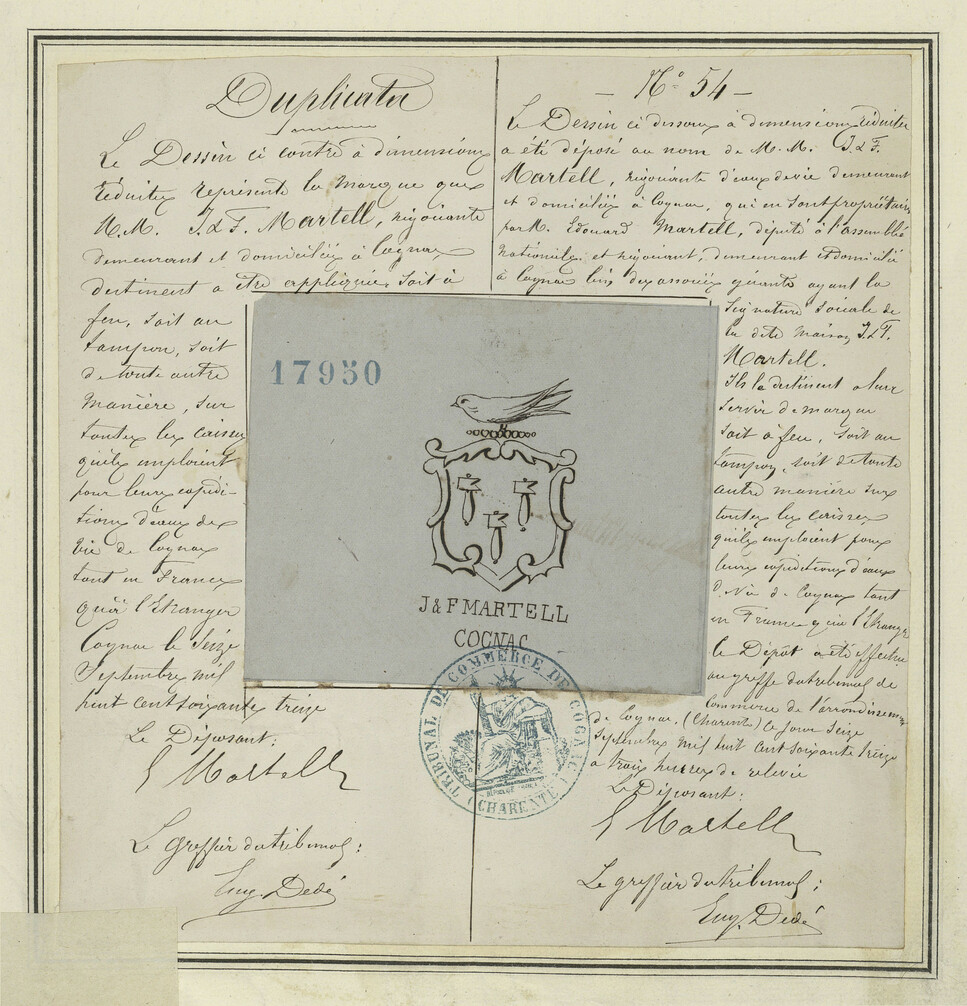 Duplicata
Le Dessin ci contre à dimensions
réduites représente la marque que
M.M. J. & F. Martell, négociants
demeurant et domiciliés à Cognac,
destinent à être appliquée, soit à
feu, soit au
tampon, soit
de toute autre
manière, sur
toutes les caisses
qu'ils emploient
pour leurs expédi-
tions d'eaux de
vie de Cognac
tant en France
qu'à l'Etranger
Cognac le Seize
Septembre mil
huit cent soixante treize
Le Déposant:
E Martell
Le greffier du tribunal:
Eug. Dedé
— N° 54 —
Le Dessin ci dessous à dimensions réduites
a été déposé au nom de M.M. J. & F.
Martell, négociants d'eaux de vie demeurant
et domiciliés à Cognac, qui en sont propriétaires
par M. Edouard Martell, député à l'assemblée
Nationale et négociant, demeurant et domicilié
à Cognac l'un des associés gérants ayant la
signature sociale de
la dite maison J. & F.
Martell.
Ils la destinent à leur
servir de marque
soit à feu, soit au
tampon, soit de toute
autre manière sur
toutes les caisses
qu'ils emploient pour
leurs expéditions d'eaux
de Vie de Cognac tant
en France qu'à l'Etranger
Le Dépôt a été effectué
au greffe du tribunal de
Commerce de l'arrondissement
de Cognac, (Charente) ce jour Seize
Septembre mil huit cent soixante treize
à trois heures de relevée
Le Déposant:
E Martell
Le greffier du tribunal:
Eug. Dedé
17950
J & F MARTELL
COGNAC
TRIBUNAL DE COMMERCE DE COGNAC
(CHARENTE)